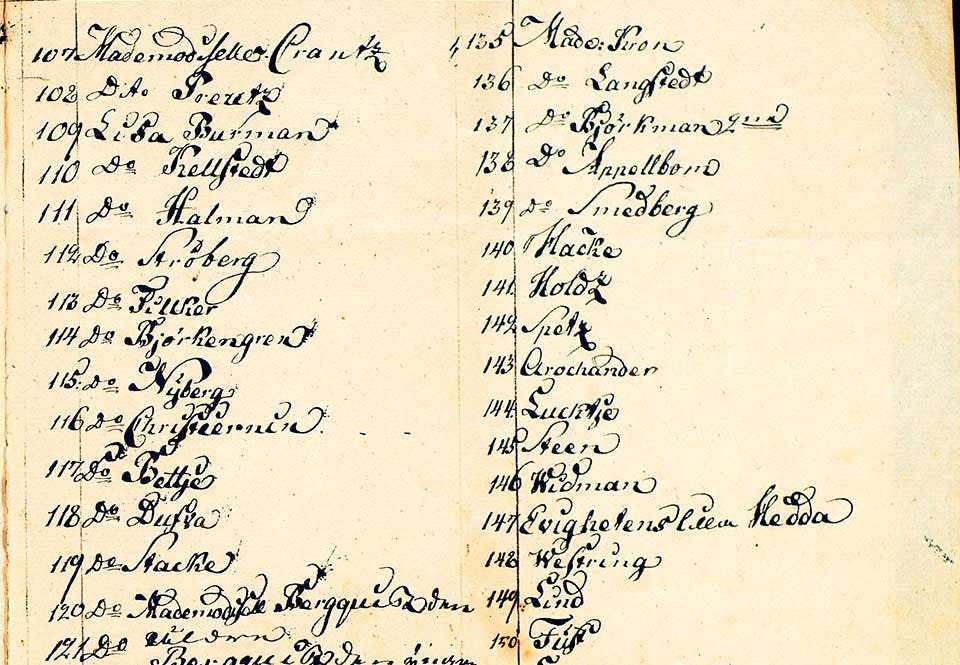 107 Mademoiselle Crantz
108 Dito Preutz
109 Lisa Burman
110 Do Kellstedt
111 Do Halman
112 Do Ströberg
113 Do Filcker
114 Do Björkengren
115 Do Nyberg
116 Do Christiernin
117 Do Bettje
118 Do Dufva
119 Do Stacke
120 Do Mademoiselle Bergquist den
121 Do äldern
Bergquist den yngre
135 Made: Kron
136 Do Langstedt
137 Do Björkman
138 Do Appellbom
139 Do Smedberg
140 Hacke
141 Holdz
142 Spetz
143 Arochander
144 Lucktje
145 Steen
146 Widman
147 Evighetens Hedda
148 Westring
149 Lind
150